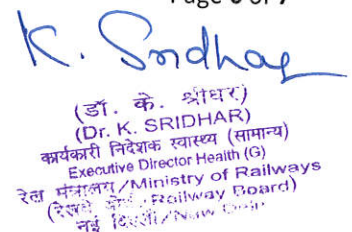 Page 6 of 7
K. Sridhar
(डॉ. के. श्रीधर)
(Dr. K. SRIDHAR)
कार्यकारी निदेशक स्वास्थ्य (सामान्य)
Executive Director Health (G)
रेल मंत्रालय/Ministry of Railways
(रेलवे बोर्ड/Railway Board)
नई दिल्ली/New